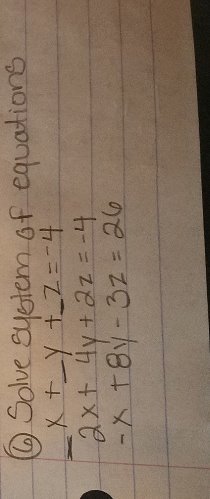 ⑥ Solve system of equations
_x + _y + _z = -4
2x + 4y + 2z = -4
-x + 8y - 3z = 26